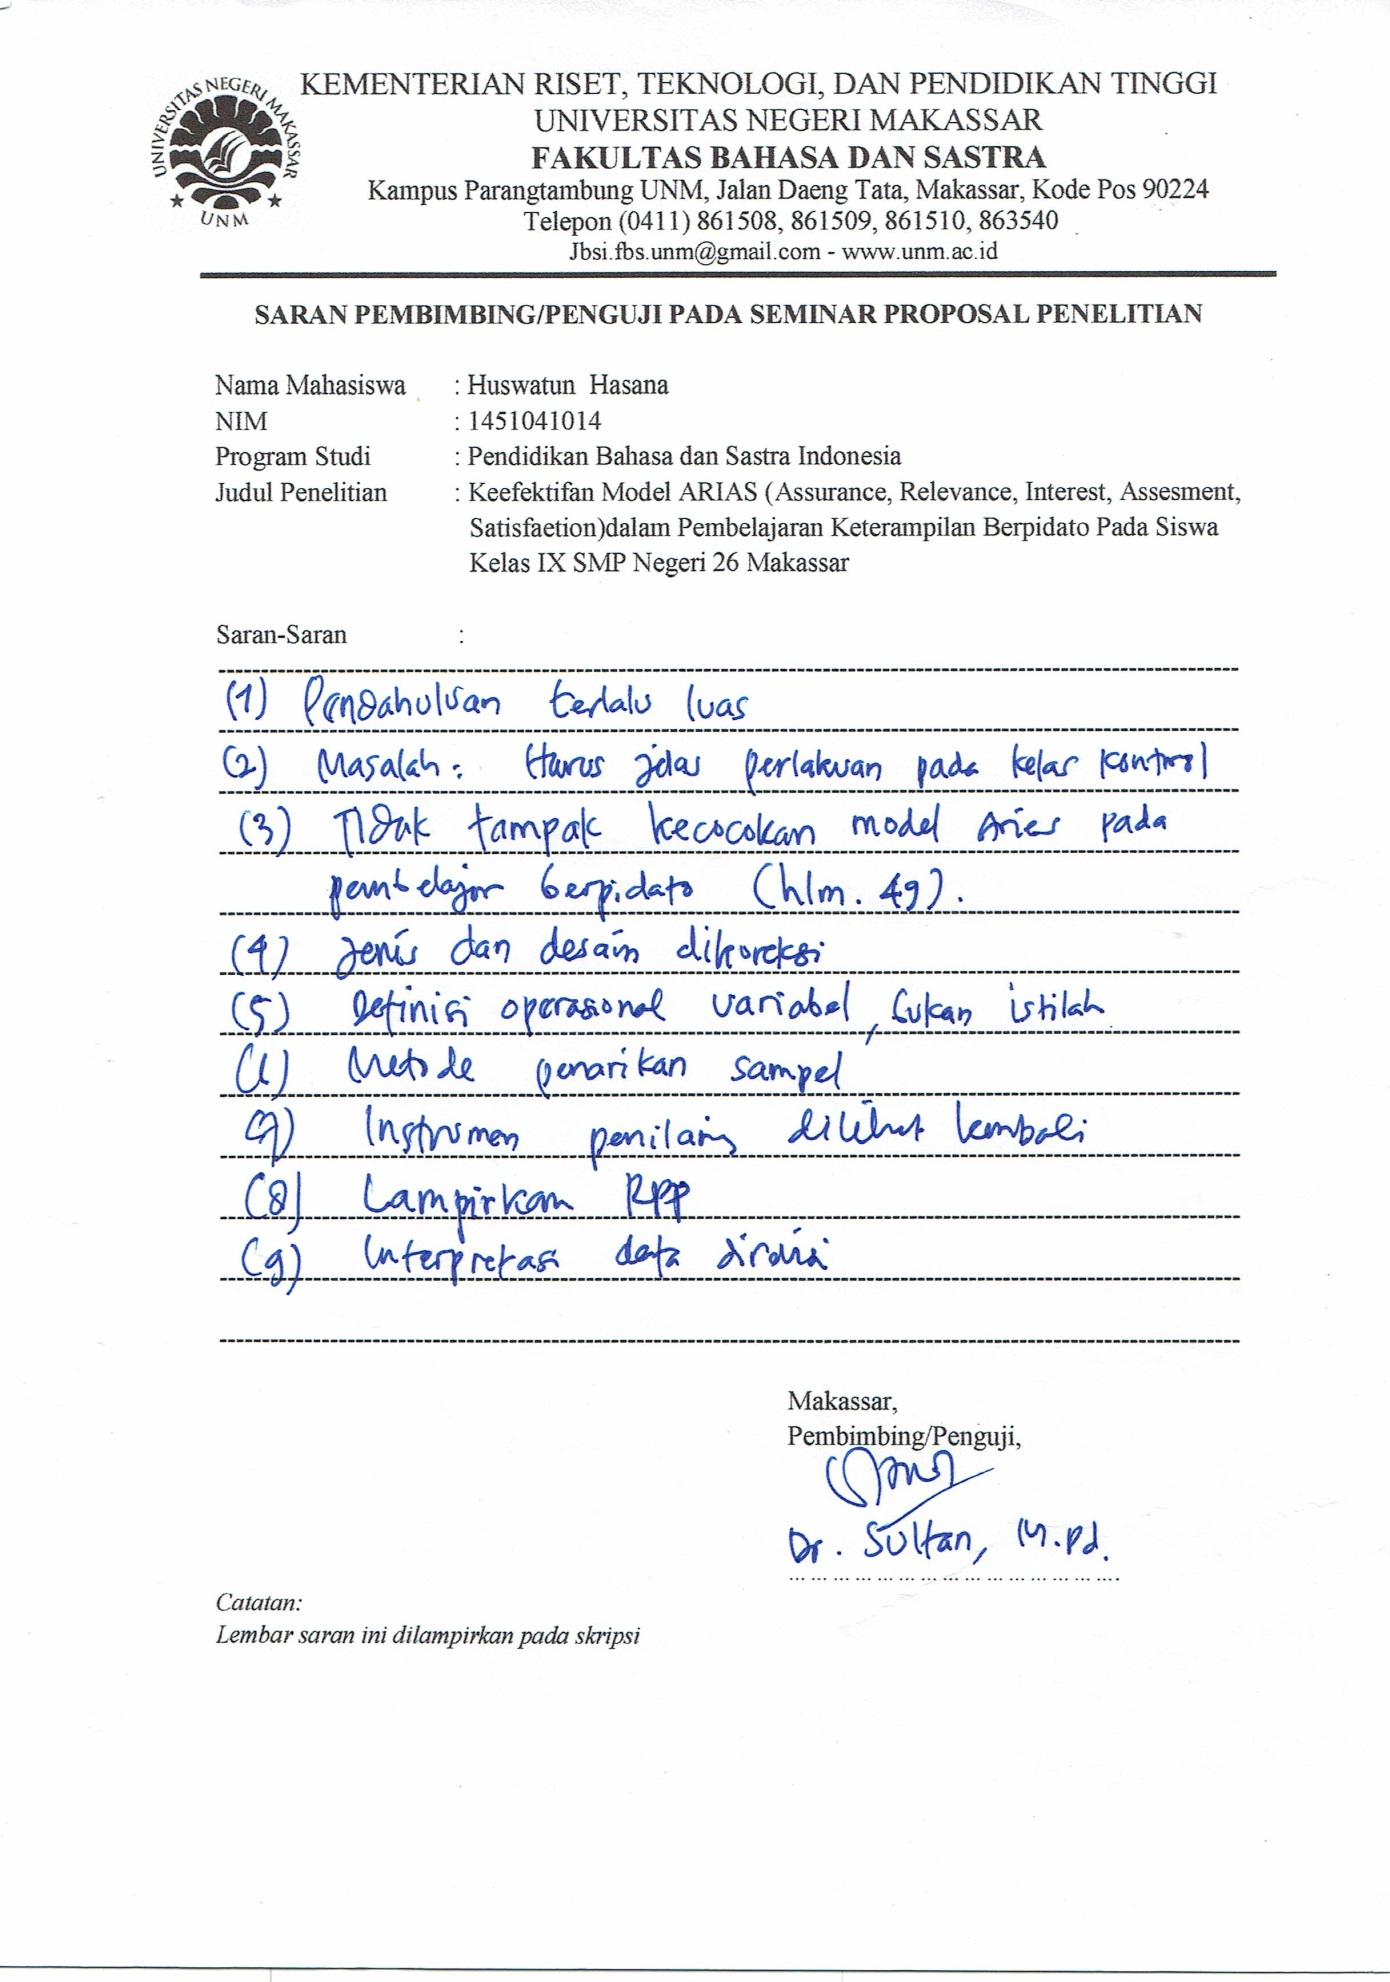 UNIVERSITAS NEGERI MAKASSAR
UNM
KEMENTERIAN RISET, TEKNOLOGI, DAN PENDIDIKAN TINGGI
UNIVERSITAS NEGERI MAKASSAR
FAKULTAS BAHASA DAN SASTRA
Kampus Parangtambung UNM, Jalan Daeng Tata, Makassar, Kode Pos 90224
Telepon (0411) 861508, 861509, 861510, 863540
Jbsi.fbs.unm@gmail.com - www.unm.ac.id
SARAN PEMBIMBING/PENGUJI PADA SEMINAR PROPOSAL PENELITIAN
Nama Mahasiswa : Huswatun Hasana
NIM : 1451041014
Program Studi : Pendidikan Bahasa dan Sastra Indonesia
Judul Penelitian : Keefektifan Model ARIAS (Assurance, Relevance, Interest, Assesment,
Satisfaetion)dalam Pembelajaran Keterampilan Berpidato Pada Siswa
Kelas IX SMP Negeri 26 Makassar
Saran-Saran :
(1) Pendahuluan terlalu luas
(2) Masalah: Harus jelas perlakuan pada kelas kontrol
(3) Tidak tampak kecocokan model Aries pada
pembelajar berpidato (hlm. 49).
(4) Jenis dan desain dikoreksi
(5) Definisi operasional variabel, bukan istilah
(6) Metode penarikan sampel
(7) Instrumen penilain dilihat kembali
(8) Lampirkan RPP
(9) Interpretasi data direvisi
Makassar,
Pembimbing/Penguji,
Dr. Sultan, M.Pd.
Catatan:
Lembar saran ini dilampirkan pada skripsi